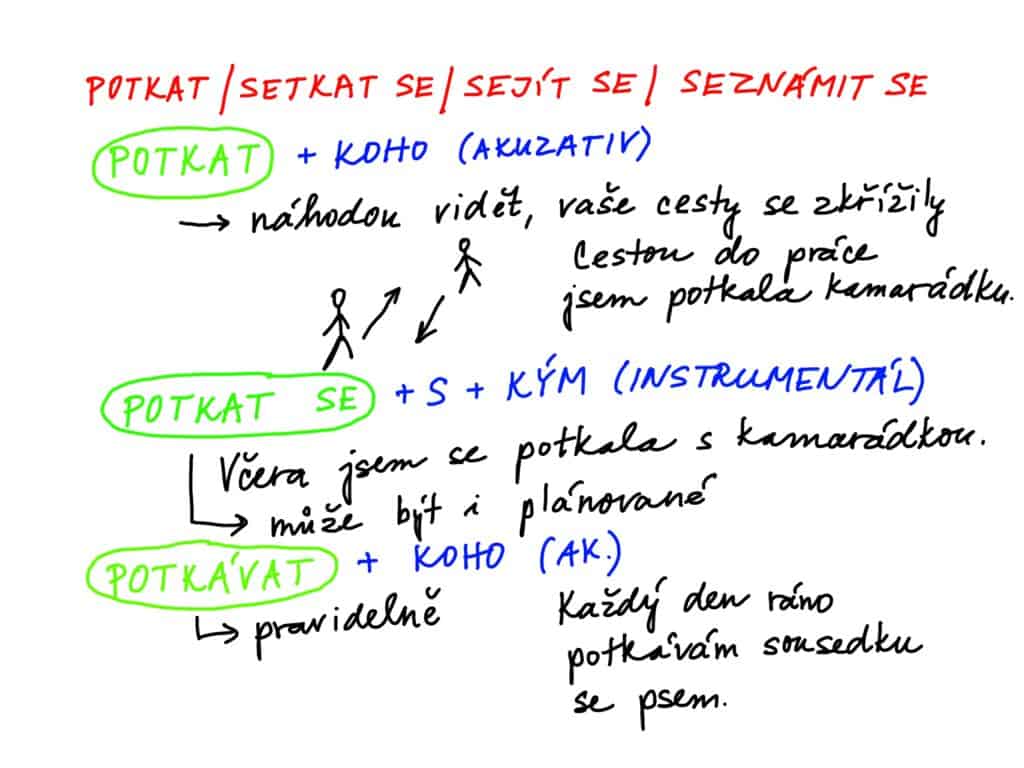 POTKAT / SETKAT SE / SEJÍT SE / SEZNÁMIT SE
POTKAT + KOHO (AKUZATIV)
→ náhodou vidět, vaše cesty se zkřížily
Cestou do práce
jsem potkala kamarádku.
POTKAT SE + S + KÝM (INSTRUMENTÁL)
Včera jsem se potkala s kamarádkou.
→ může být i plánované
POTKÁVAT + KOHO (AK.)
→ pravidelně
Každý den ráno
potkávám sousedku
se psem.